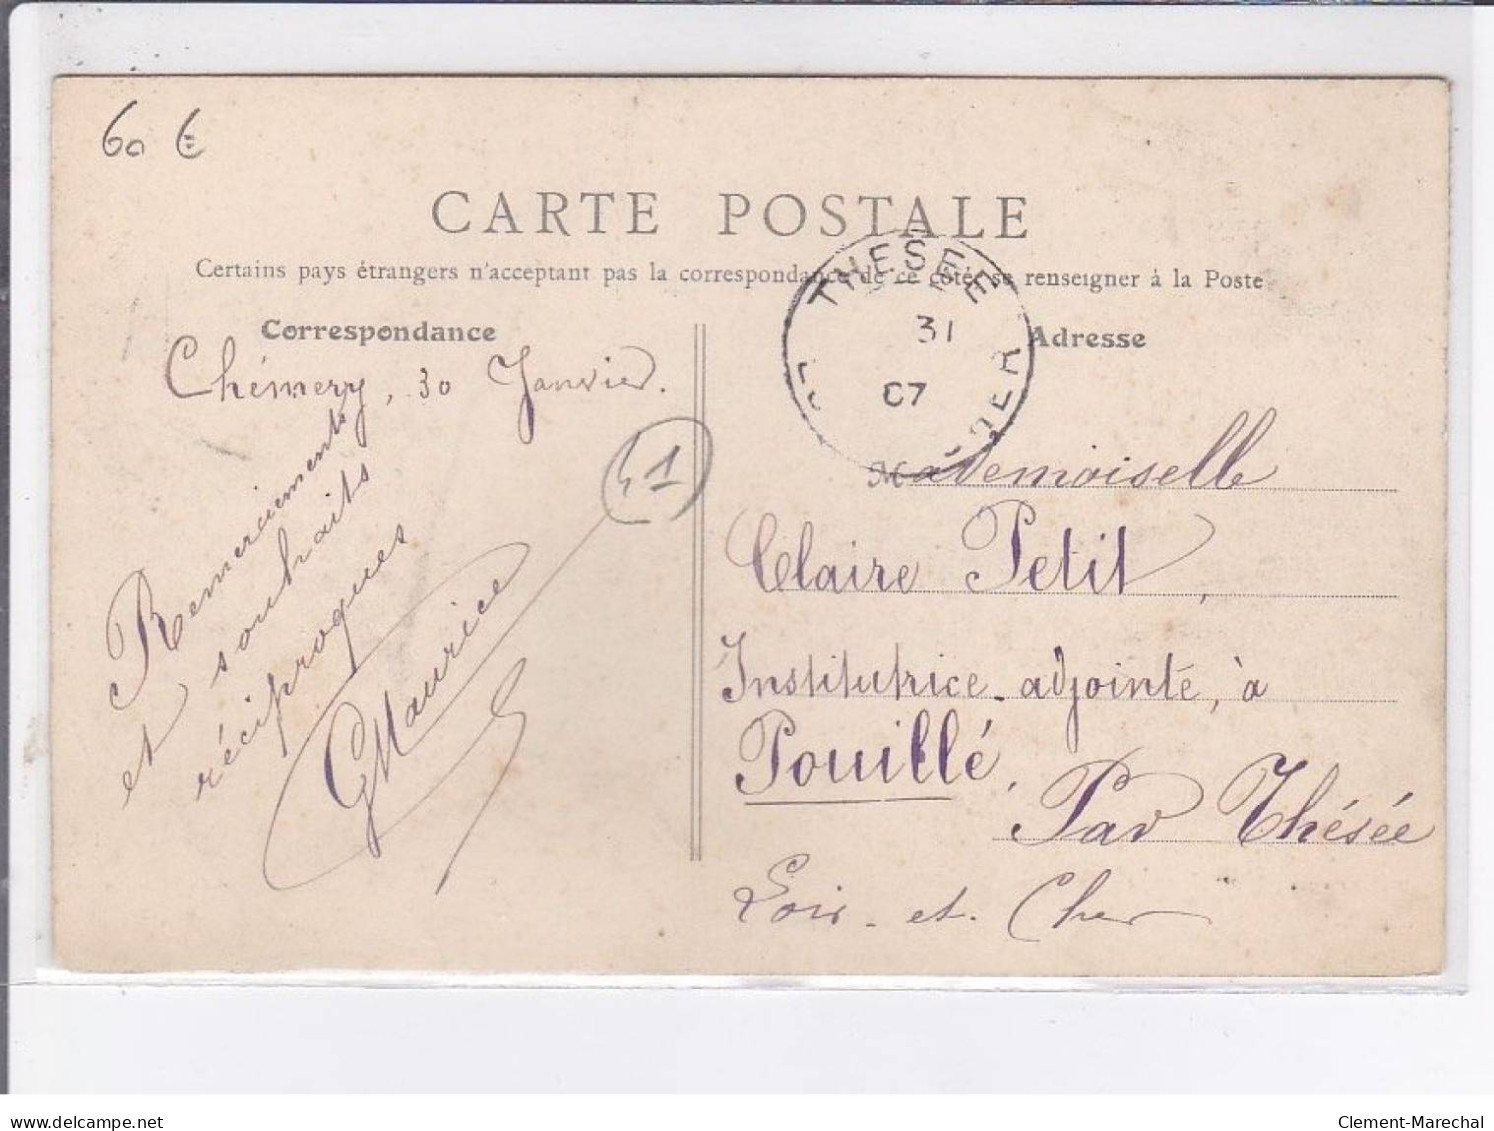 60 €
CARTE POSTALE
Certains pays étrangers n'acceptant pas la correspondance de ce côté, se renseigner à la Poste
Correspondance
Chémery, 30 Janvier.
Remerciements
et souhaits
réciproques
GMaurice
41
THESEE
31
07
CHER
Adresse
Mademoiselle
Claire Petit,
Institutrice-adjointe, à
Pouillé,
Par Thésée
Loir-et-Cher
www.delcampe.net
Clement-Marechal